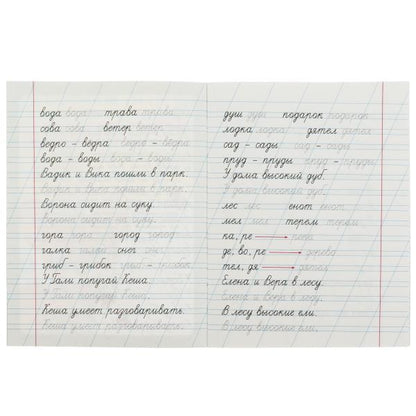 вода вода трава трава
сова сова ветер ветер
ведро - вёдра ведро - вёдра
вода - воды вода - воды
Вадик и Вика пошли в парк.
Вадик и Вика пошли в парк.
Ворона сидит на суку.
Ворона сидит на суку.
гора гора город город
галка галка снег снег
гриб - грибок гриб - грибок
У Гали попугай Кеша.
У Гали попугай Кеша.
Кеша умеет разговаривать.
Кеша умеет разговаривать.
душ душ подарок подарок
лодка лодка дятел дятел
сад - сады сад - сады
пруд - пруды пруд - пруды
У дома высокий дуб.
У дома высокий дуб.
лес лес енот енот
мел мел терем терем
ка, ре река
де, во, ре дерево
тел, дя дятел
Елена и Вера в лесу.
Елена и Вера в лесу.
В лесу высокие ели.
В лесу высокие ели.